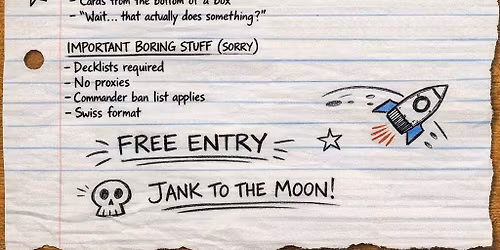 - Cards from the bottom of a box
- "Wait... that actually does something?"
IMPORTANT BORING STUFF (SORRY)
- Decklists required
- No proxies
- Commander ban list applies
- Swiss format
FREE ENTRY
JANK TO THE MOON!